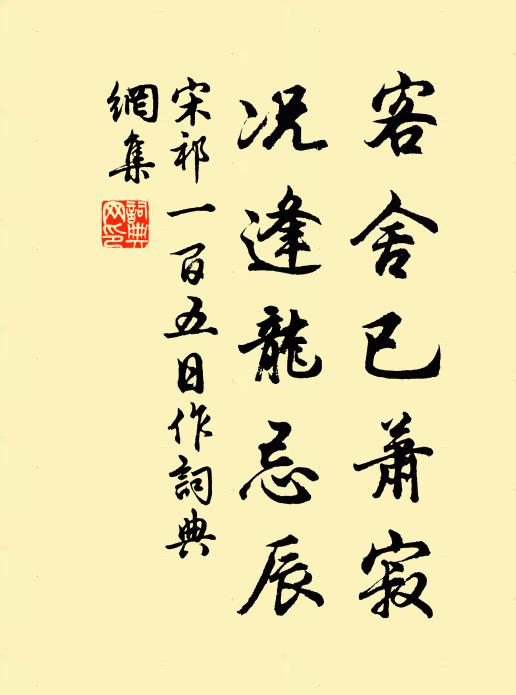 客舍已蕭寂
況逢龍忌辰
宋祁一百五日作詞典
網集
詞典網印